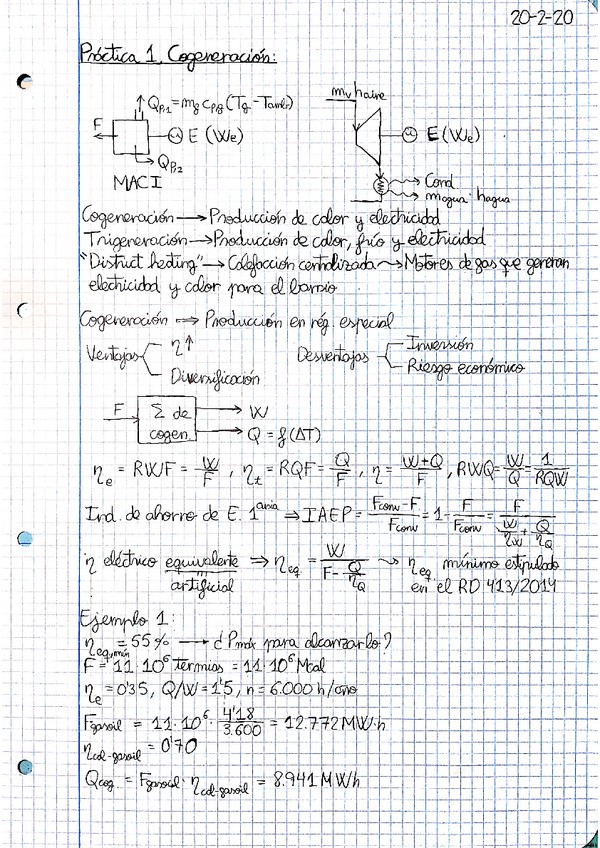 20-2-20
Práctica 1. Cogeneración:
Q_p1 = m_g c_pg (T_g - T_amb)
F
E (We)
Q_p2
MACI
m_v h aire
E (We)
Cond
m agua · h agua
Cogeneración → Producción de calor y electricidad
Trigeneración → Producción de calor, frío y electricidad
"District heating" → Calefacción centralizada ⇝ Motores de gas que generan
electricidad y calor para el barrio
Cogeneración ⇒ Producción en rég. especial
Ventajas
η↑
Diversificación
Desventajas
Inversión
Riesgo económico
F
Σ de
cogen.
W
Q = f(ΔT)
η_e = RWF = W/F , η_t = RQF = Q/F , η = (W+Q)/F , RWQ = W/Q = 1/RQW
Ind. de ahorro de E. 1^aria ⇒ IAEP = (F_conv - F)/F_conv = 1 - F/F_conv = F/(W/η_W + Q/η_Q)
η eléctrico equivalente ⇒ η_eq = W/(F - Q/η_Q) ⇝ η_eq mínimo estipulado
artificial
en el RD 413/2014
Ejemplo 1:
η_eq,mín = 55% → ¿ Pmáx para alcanzarlo?
F = 11·10^6 termias = 11·10^6 Mcal
η_e = 0'35, Q/W = 1'5, n = 6.000 h/año
F_gasoil = 11·10^6 · 4'18/3.600 = 12.772 MW·h
η_cal-gasoil = 0'70
Q_cog. = F_gasoil · η_cal-gasoil = 8.941 MWh